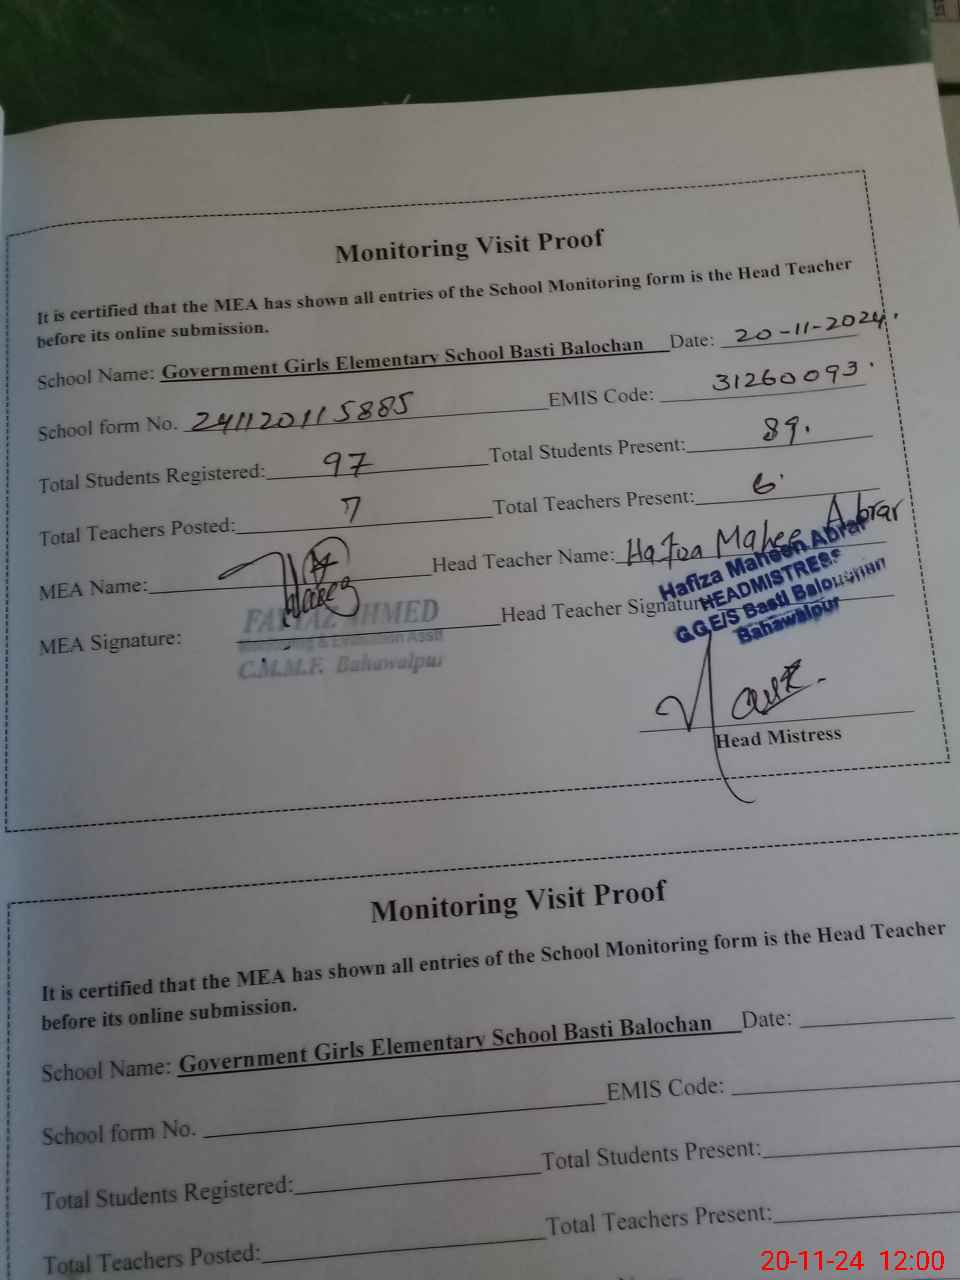 Monitoring Visit Proof
It is certified that the MEA has shown all entries of the School Monitoring form is the Head Teacher
before its online submission.
School Name: Government Girls Elementary School Basti Balochan Date: 20-11-2024.
School form No. 241120115885 EMIS Code: 31260093
Total Students Registered: 97 Total Students Present: 89.
Total Teachers Posted: 7 Total Teachers Present: 6
MEA Name: Head Teacher Name: Hafiza Maheen Abrar
MEA Signature: Head Teacher Signature
AHMED
Monitoring & Evaluation Asstt
C.M.M.F. Bahawalpur
Hafiza Maheen Abrar
HEADMISTRESS
G.G.E/S Basti Baloushan
Bahawalpur
Head Mistress
Monitoring Visit Proof
It is certified that the MEA has shown all entries of the School Monitoring form is the Head Teacher
before its online submission.
School Name: Government Girls Elementary School Basti Balochan Date:
School form No. EMIS Code:
Total Students Registered: Total Students Present:
Total Teachers Posted: Total Teachers Present:
20-11-24 12:00